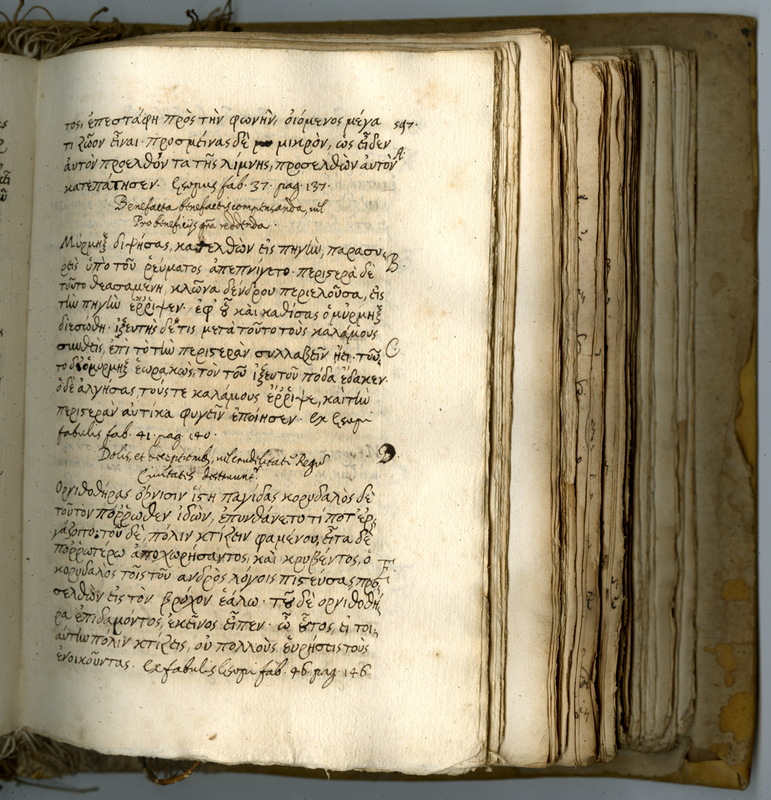 τος, ἐπεστάφη πρὸς τὴν φωνὴν, οἰόμενος μέγα 547.
τι ζῶον εἶναι· προσμείνας δὲ μικρὸν, ὡς εἶδεν A
αὐτὸν προελθόντα τῆς λίμνης, προσελθὼν αὐτὸν
κατεπάτησεν. Esopus fab. 37. pag. 137.
Benefacta benefactis compensanda, vel
Pro beneficijs reddenda.
Μύρμηξ διψήσας, κατελθὼν εἰς πηγὴν, παρασυ- B.
ρεὶς ὑπὸ τοῦ ῥεύματος ἀπεπνίγετο· περιστερὰ δὲ
τοῦτο θεασαμένη, κλῶνα δένδρου περιελοῦσα, εἰς
τὴν πηγὴν ἔῤῥιψεν· ἐφ' οὗ καὶ καθίσας ὁ μύρμηξ
διεσώθη· ἰξευτὴς δέ τις μετὰ τοῦτο τοὺς καλάμους
συνθεὶς, ἐπὶ τὸ τὴν περιστερὰν συλλαβεῖν ᾔει· τοῦ- C.
το δ' ὁ μύρμηξ ἑωρακὼς, τὸν τοῦ ἰξευτοῦ πόδα ἔδακεν·
ὁ δὲ ἀλγήσας, τούς τε καλάμους ἔῤῥιψε, καὶ τὴν
περιστερὰν αὐτίκα φυγεῖν ἐποίησεν. Ex Esopi
fabulis fab. 41. pag. 140.
Dolis, et vel crudelitati Regum D.
Civitates
Ὀρνιθοθήρας ὄρνισιν ἵστη παγίδας κορυδαλὸς δὲ
τοῦτον πόῤῥωθεν ἰδὼν, ἐπυνθάνετο τί ποτ' ἐρ-
γάζοιτο· τοῦ δὲ, πόλιν κτίζειν φαμένου, εἶτα δὲ
ποῤῥωτέρω ἀποχωρήσαντος, καὶ κρυβέντος, ὁ
κορυδαλὸς τοῖς τοῦ ἀνδρὸς λόγοις πιστεύσας προ-
σελθὼν εἰς τὸν βρόχον ἑάλω· τοῦ δὲ ὀρνιθοθή-
ρα ἐπιδαμόντος, ἐκεῖνος εἶπεν· ὦ οὗτος, εἰ τοι-
αύτην πόλιν κτίζεις, οὐ πολλοὺς εὑρήσεις τοὺς
ἐνοικοῦντας. Ex fabulis Esopi fab. 46. pag. 146